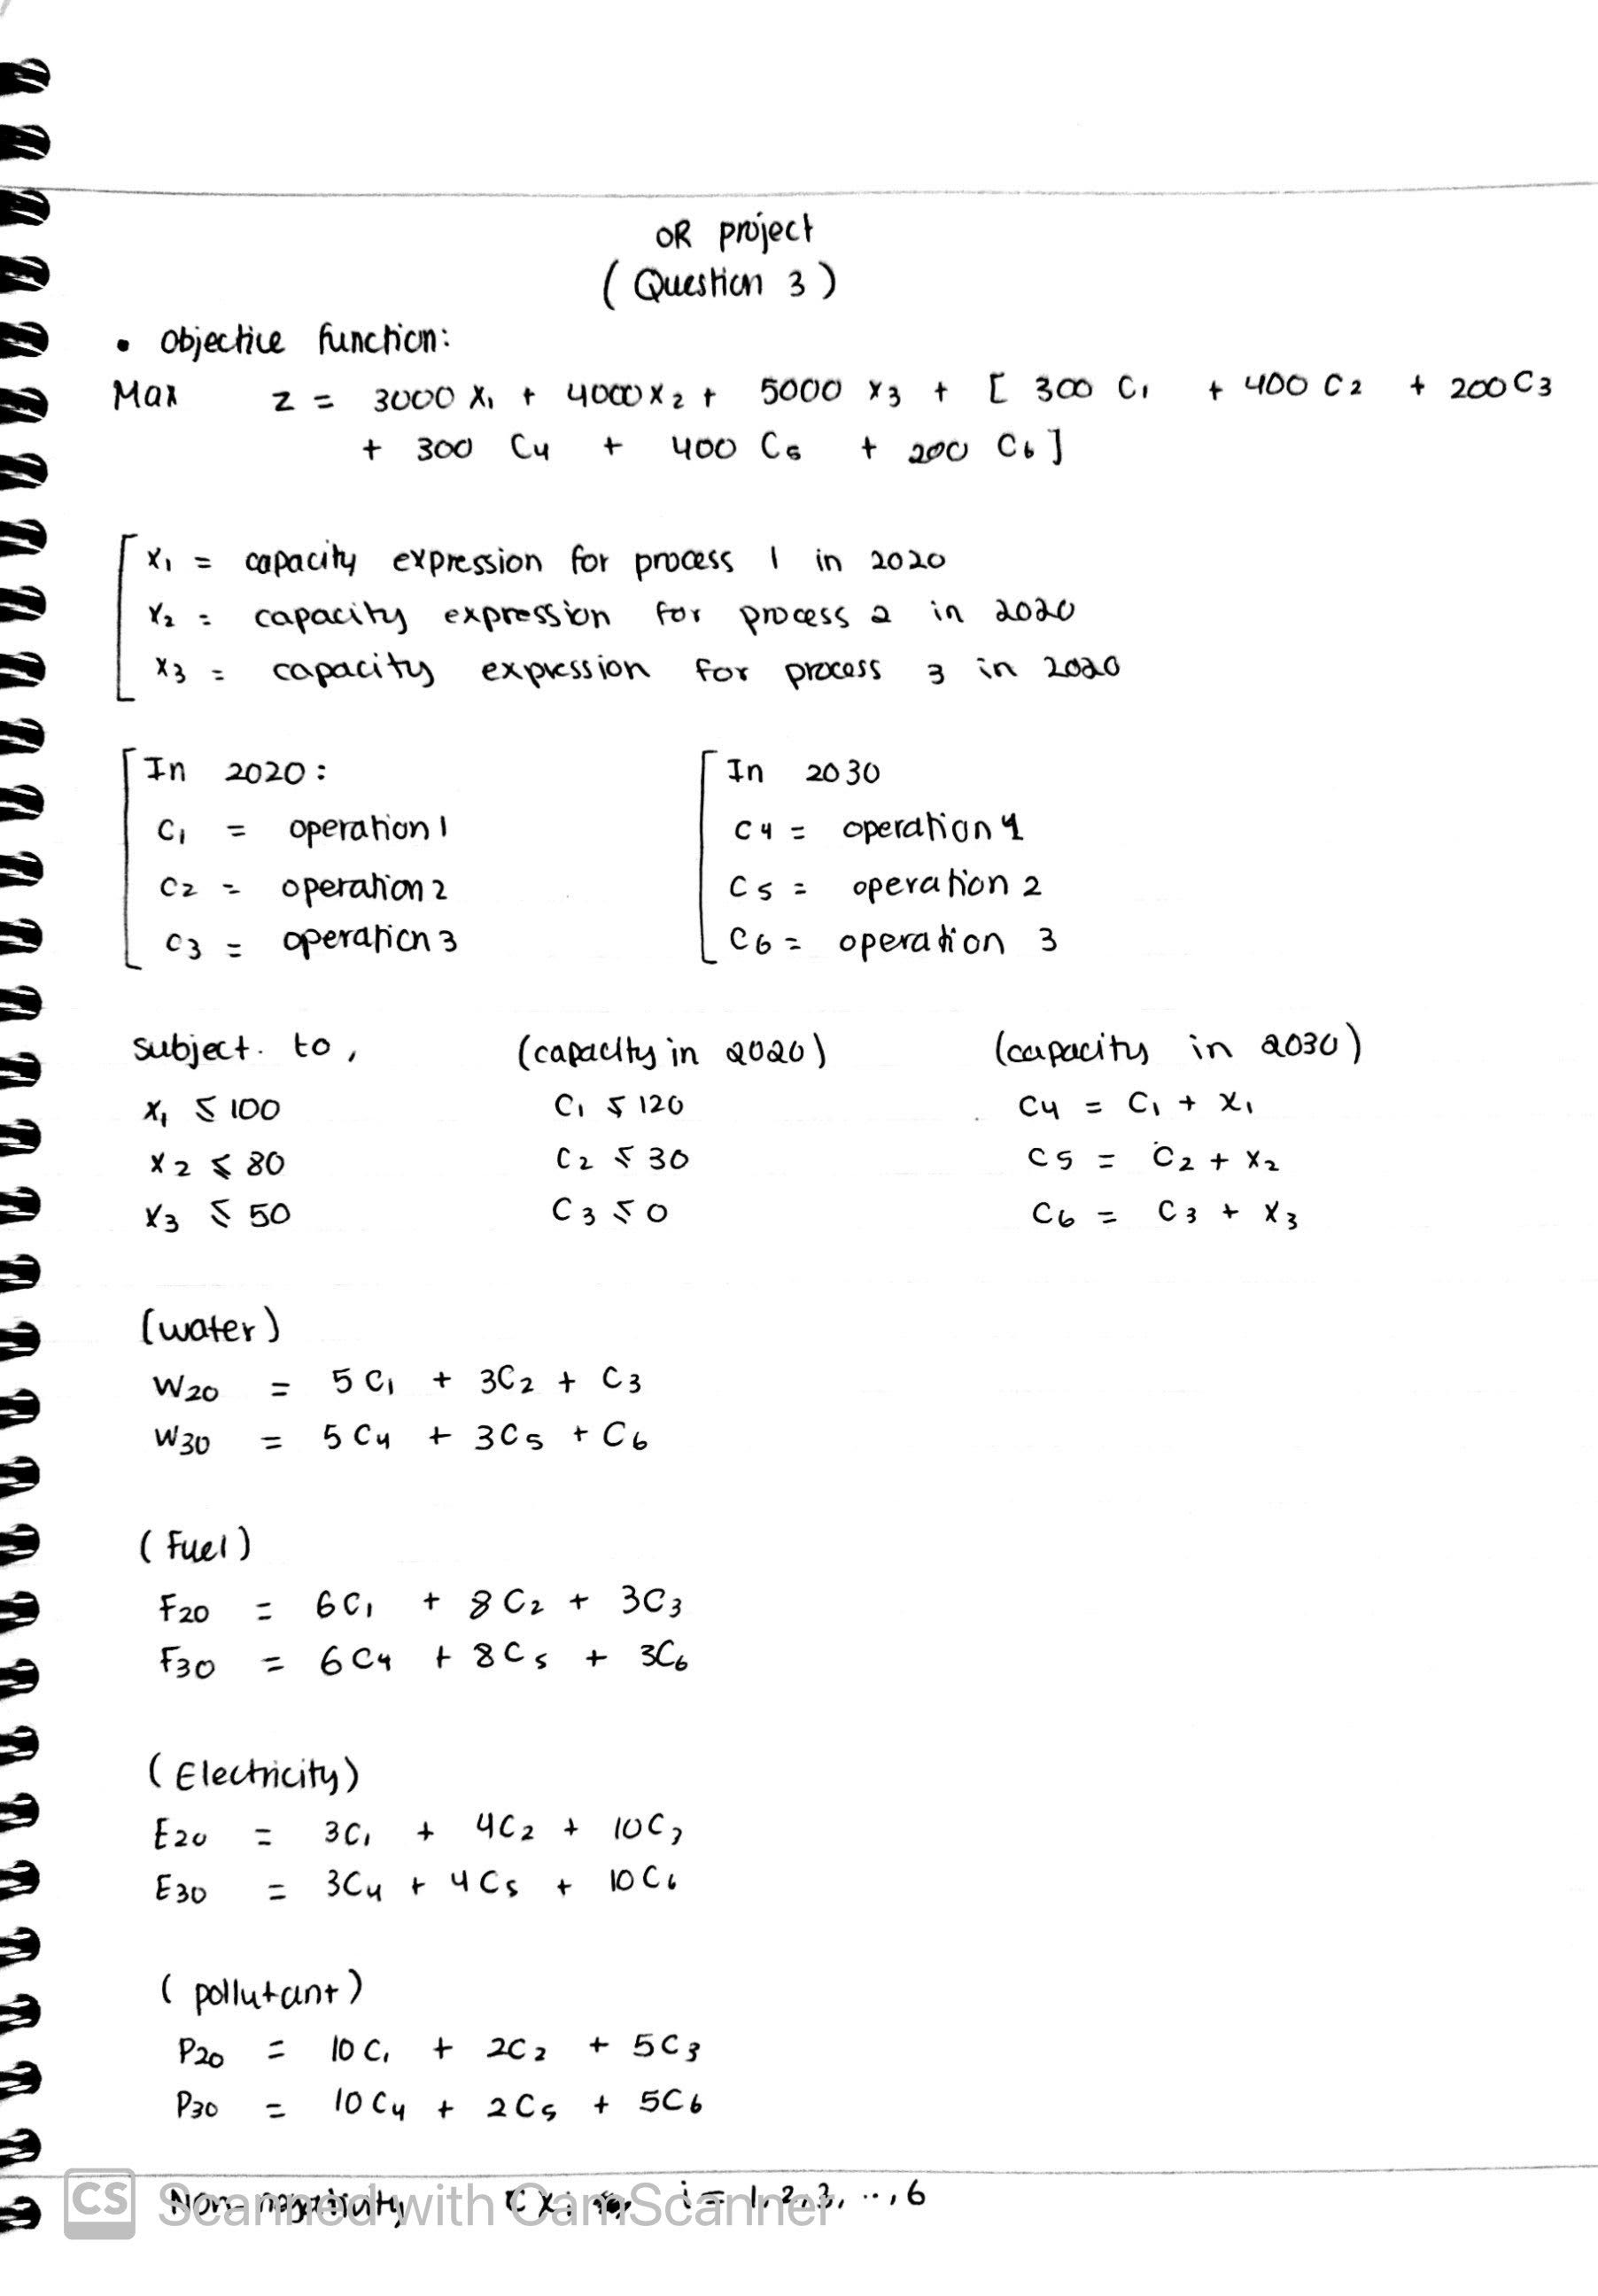 OR project
(Question 3)
• Objective function:
Max z = 3000 x₁ + 4000 x₂ + 5000 x₃ + [ 300 C₁ + 400 C₂ + 200 C₃
+ 300 C₄ + 400 C₅ + 200 C₆ ]
x₁ = capacity expression for process 1 in 2020
x₂ = capacity expression for process 2 in 2020
x₃ = capacity expression for process 3 in 2020
In 2020:
C₁ = operation 1
C₂ = operation 2
C₃ = operation 3
In 2030
C₄ = operation 1
C₅ = operation 2
C₆ = operation 3
subject. to,
x₁ ≤ 100
x₂ ≤ 80
x₃ ≤ 50
(capacity in 2020)
C₁ ≤ 120
C₂ ≤ 30
C₃ ≤ 0
(capacity in 2030)
C₄ = C₁ + x₁
C₅ = C₂ + x₂
C₆ = C₃ + x₃
(water)
W₂₀ = 5C₁ + 3C₂ + C₃
W₃₀ = 5C₄ + 3C₅ + C₆
(Fuel)
F₂₀ = 6C₁ + 8C₂ + 3C₃
F₃₀ = 6C₄ + 8C₅ + 3C₆
(Electricity)
E₂₀ = 3C₁ + 4C₂ + 10C₃
E₃₀ = 3C₄ + 4C₅ + 10C₆
(pollutant)
P₂₀ = 10C₁ + 2C₂ + 5C₃
P₃₀ = 10C₄ + 2C₅ + 5C₆
Non-negativity i = 1, 2, 3, .., 6
CS Scanned with CamScanner